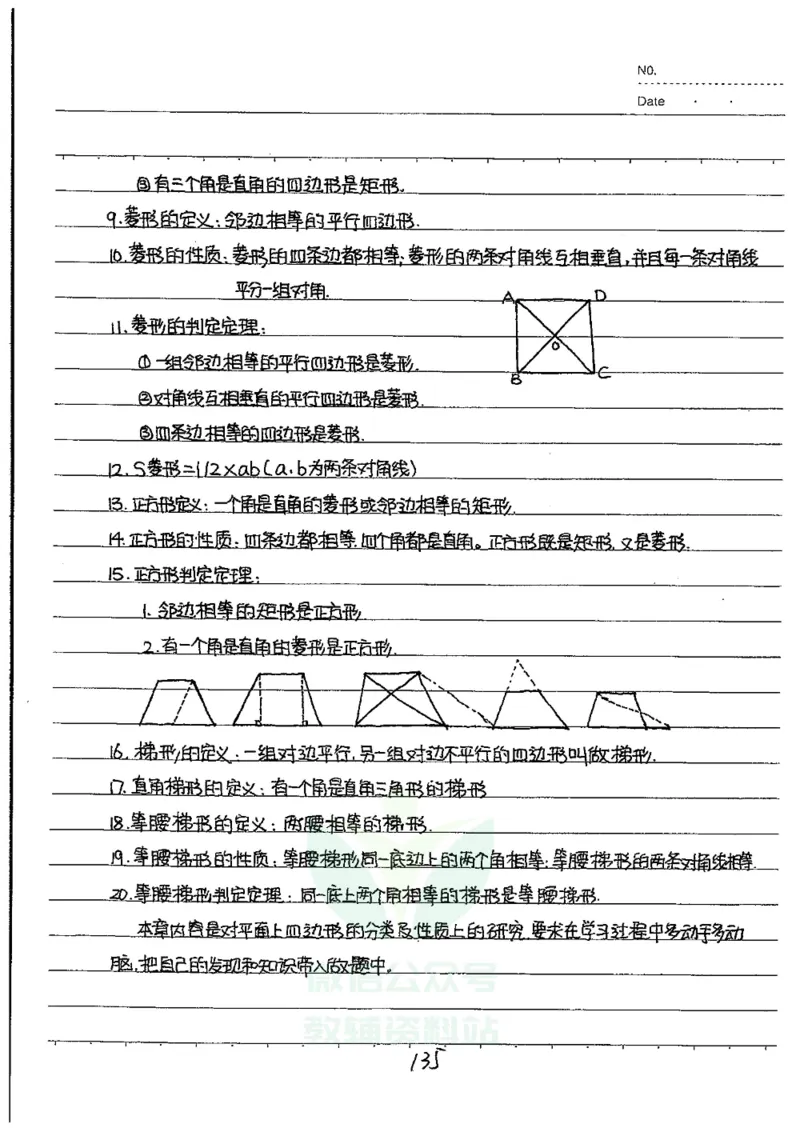 NO.
Date
③有三个角是直角的四边形是矩形.
9.菱形的定义:邻边相等的平行四边形.
10.菱形的性质:菱形的四条边都相等;菱形的两条对角线互相垂直,并且每一条对角线
平分一组对角.
A D
11.菱形的判定定理:
O
①一组邻边相等的平行四边形是菱形.
B C
②对角线互相垂直的平行四边形是菱形.
③四条边相等的四边形是菱形.
12.S菱形=1/2×ab(a、b为两条对角线)
13.正方形定义:一个角是直角的菱形或邻边相等的矩形.
14.正方形的性质:四条边都相等.四个角都是直角。正方形既是矩形,又是菱形.
15.正方形判定定理:
1.邻边相等的矩形是正方形
2.有一个角是直角的菱形是正方形.
16.梯形的定义:一组对边平行,另一组对边不平行的四边形叫做梯形.
17.直角梯形的定义:有一个角是直角三角形的梯形
18.等腰梯形的定义:两腰相等的梯形.
19.等腰梯形的性质:等腰梯形同一底边上的两个角相等;等腰梯形的两条对角线相等.
20.等腰梯形判定定理:同一底上两个角相等的梯形是等腰梯形.
本章内容是对平面上四边形的分类及性质上的研究,要求在学习过程中多动手多动
脑,把自己的发现和知识带入做题中。
微信公众号
教辅资料站
135